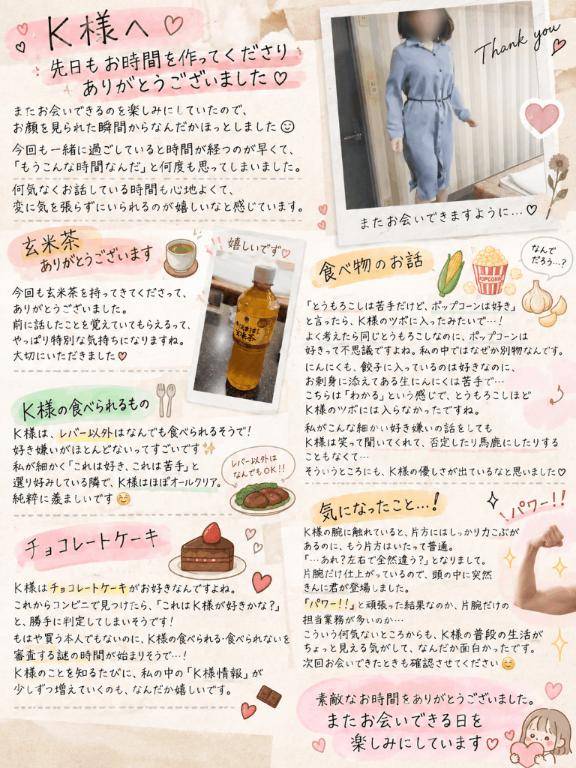 K様へ♡
先日もお時間を作ってくださり
ありがとうございました♡
またお会いできるのを楽しみにしていたので、
お顔を見られた瞬間からなんだかほっとしました☺
今回も一緒に過ごしていると時間が経つのが早くて、
「もうこんな時間なんだ」と何度も思ってしまいました。
何気なくお話している時間も心地よくて、
変に気を張らずにいられるのが嬉しいなと感じています。
Thank you
またお会いできますように…♡
玄米茶
ありがとうございます
今回も玄米茶を持ってきてくださって、
ありがとうございました。
前に話したことを覚えていてもらえるって、
やっぱり特別な気持ちになりますね。
大切にいただきました♡
嬉しいです♡
玄米茶
K様の食べられるもの
K様は、レバー以外はなんでも食べられるそうで!
好き嫌いがほとんどないってすごいです✨
私が細かく「これは好き、これは苦手」と
選り好みしている隣で、K様はほぼオールクリア。
純粋に羨ましいです😊
レバー以外は
なんでもOK!!
チョコレートケーキ
K様はチョコレートケーキがお好きなんですよね。
これからコンビニで見つけたら、「これはK様が好きかな?」
と、勝手に判定してしまいそうです!
もはや買う本人でもないのに、K様の食べられる・食べられないを
審査する謎の時間が始まりそうで…!
K様のことを知るたびに、私の中の「K様情報」が
少しずつ増えていくのも、なんだか嬉しいです。
食べ物のお話
POPCORN
なんで
だろう…?
「とうもろこしは苦手だけど、ポップコーンは好き」
と言ったら、K様のツボに入ったみたいで…!
よく考えたら同じとうもろこしなのに、ポップコーンは
好きって不思議ですよね。私の中ではなぜか別物なんです。
にんにくも、餃子に入っているのは好きなのに、
お刺身に添えてある生にんにくは苦手で…
こちらは「わかる」という感じで、とうもろこしほど
K様のツボには入らなかったですね。
私がこんな細かい好き嫌いの話をしても
K様は笑って聞いてくれて、否定したり馬鹿にしたりする
こともなくて…
そういうところにも、K様の優しさが出ているなと思いました♡
気になったこと…!
パワー!!
K様の腕に触れていると、片方にはしっかり力こぶが
あるのに、もう片方はいたって普通。
「…あれ?左右で全然違う?」となりまして。
片腕だけ仕上がっているので、頭の中に突然
きんに君が登場しました。
「パワー!!」と頑張った結果なのか、片腕だけの
担当業務が多いのか…
こういう何気ないところからも、K様の普段の生活が
ちょっと見える気がして、なんだか面白かったです。
次回お会いできたときも確認させてください😊
素敵なお時間をありがとうございました。
またお会いできる日を
楽しみにしています♡